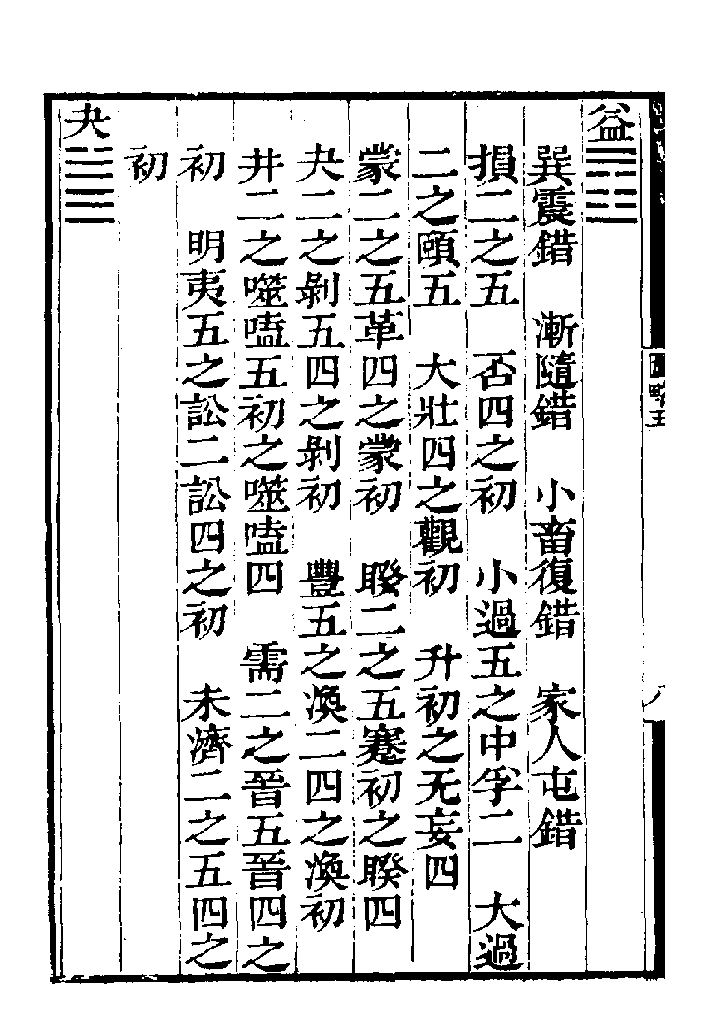 益䷩
巽震錯　漸隨錯　小畜復錯　家人屯錯
損二之五　否四之初　小過五之中孚二　大過
二之頤五　大壯四之觀初　升初之无妄四
蒙二之五革四之蒙初　睽二之五蹇初之睽四
夬二之剝五四之剝初　豐五之渙二四之渙初
井二之噬嗑五初之噬嗑四　需二之晉五晉四之
初　明夷五之訟二訟四之初　未濟二之五四之
初
夬